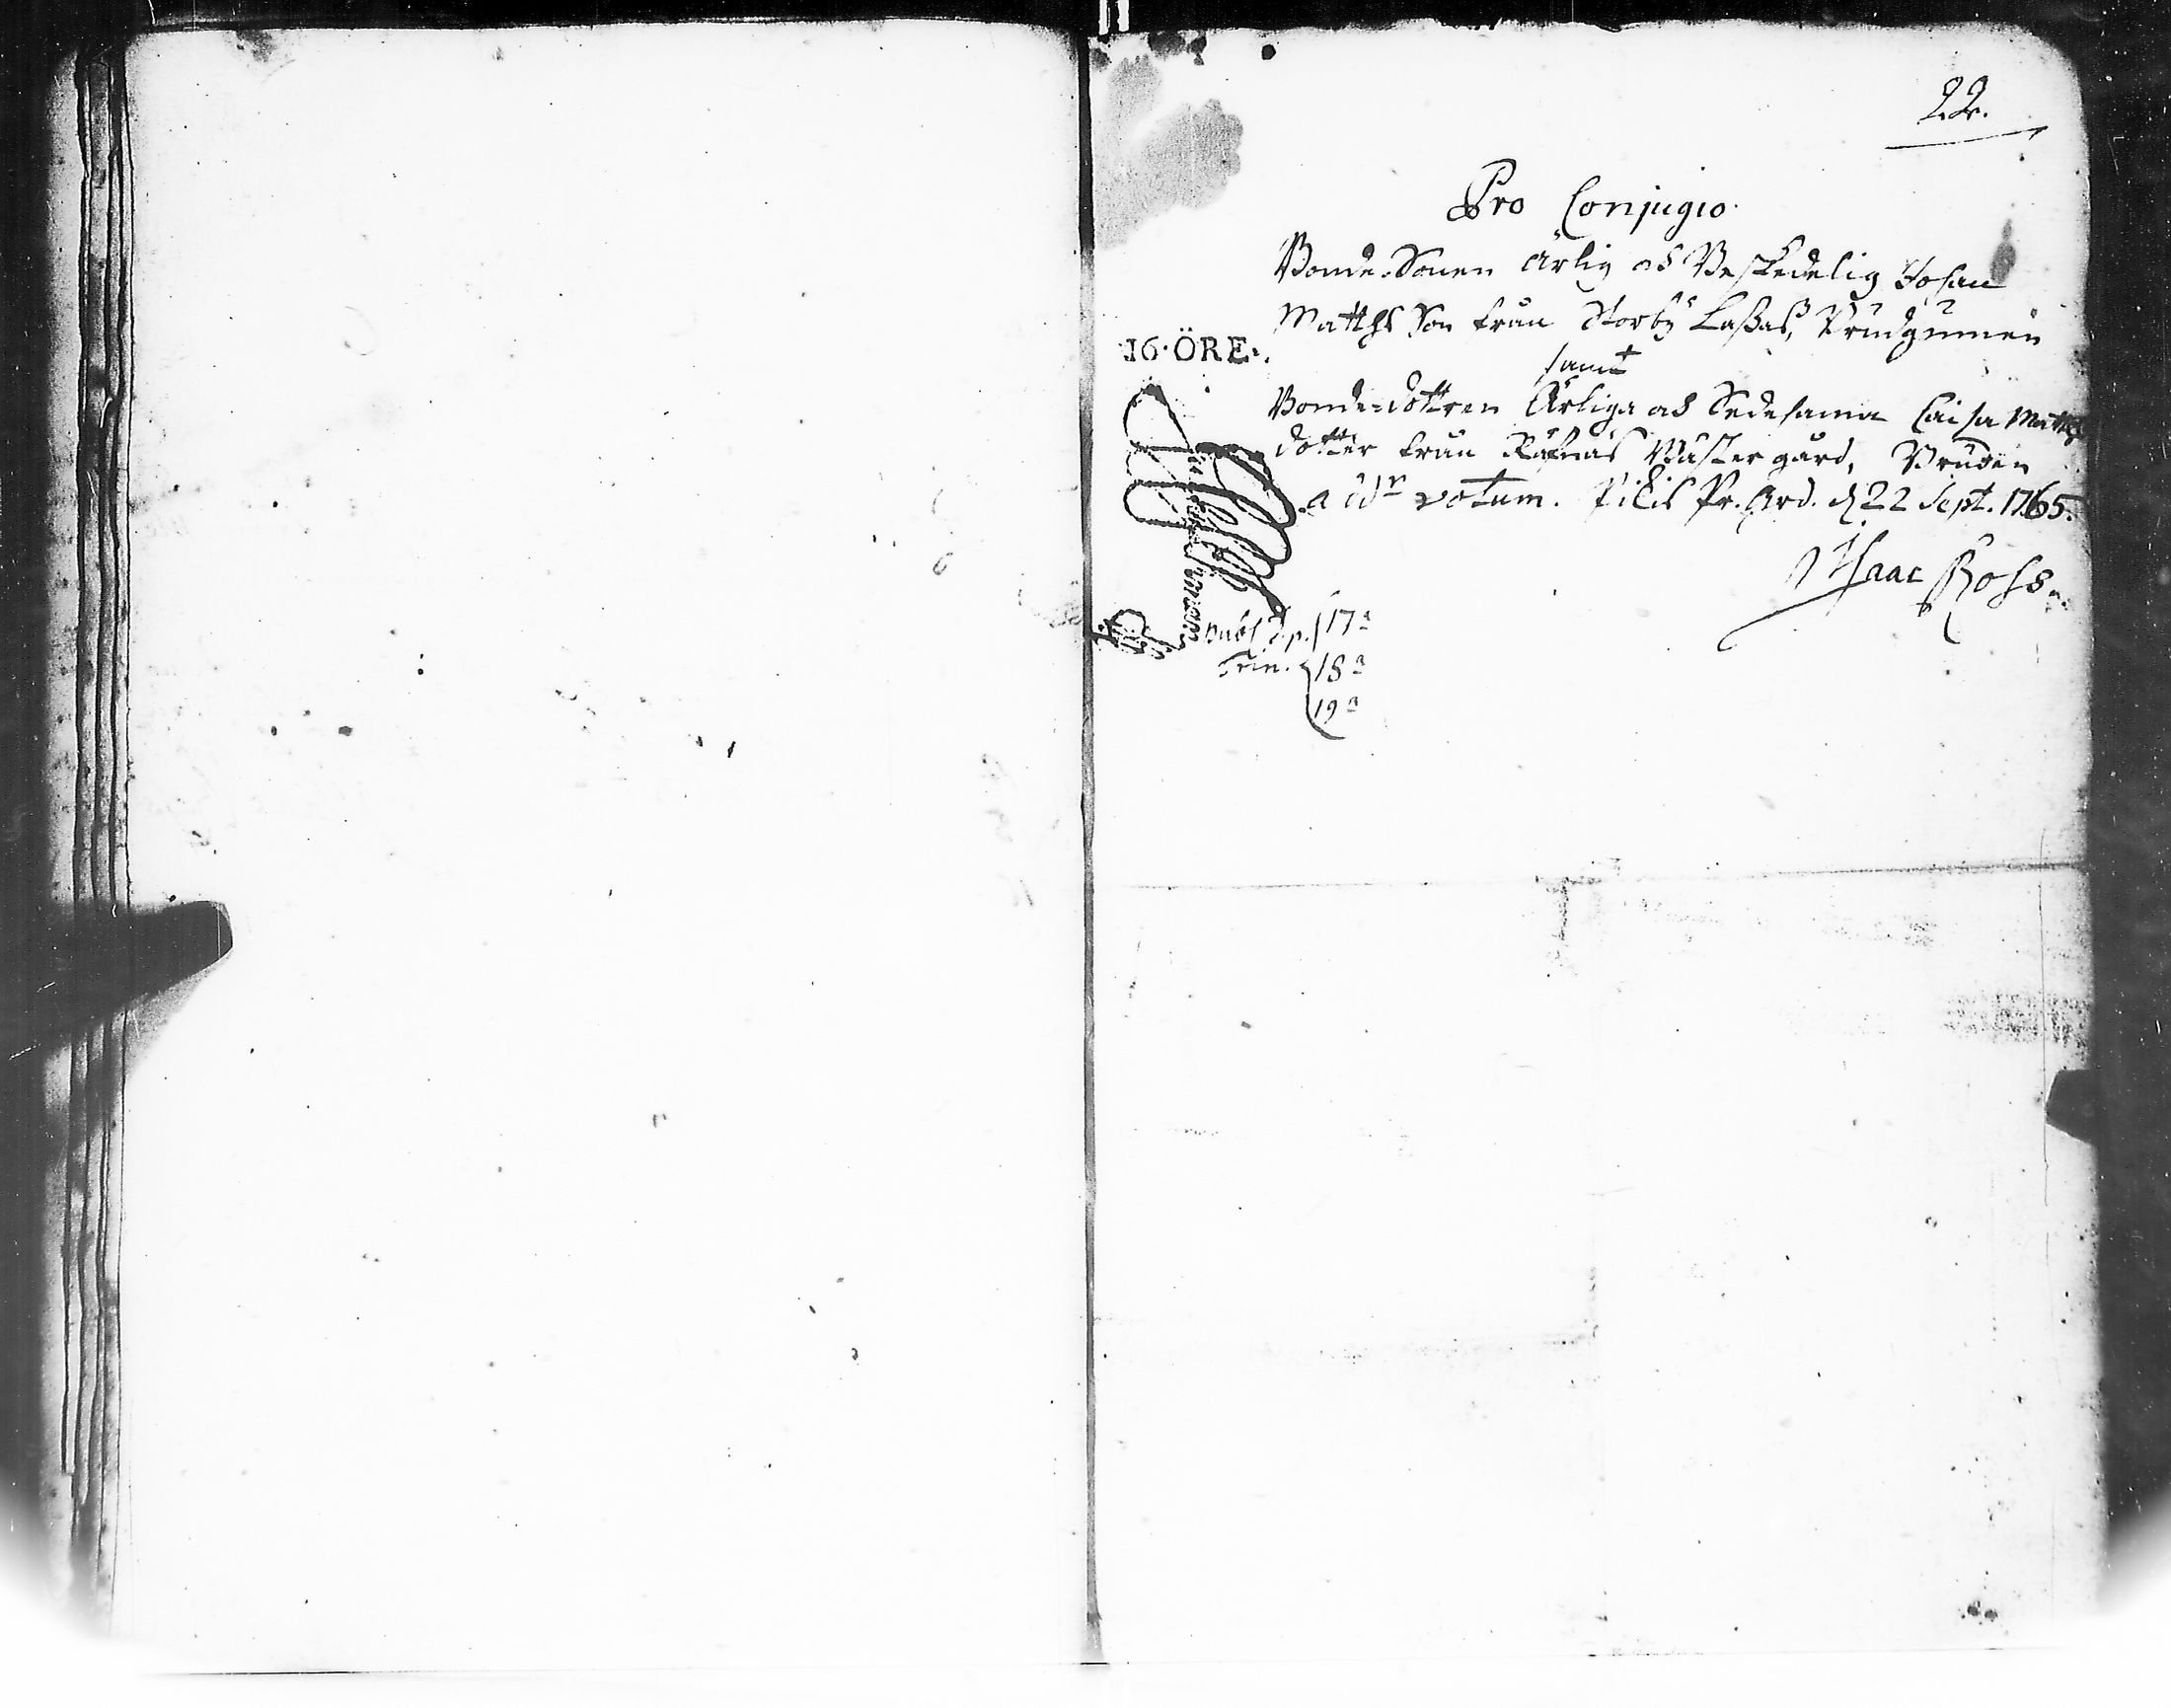 22.
Pro Conjugio
Bonde-Sonen ärlig och Beskedelig Johan
Matths Son från Storby Laßas, Brudgumen
samt
Bonde-dottren Ärliga och Sedesama Caisa Matths
dotter från Räfnäs Wästergård, Bruden
a votum. Pr. Grd. d 22 Sept. 1765.
Isaac Ross.
16·ÖRE.
publ. Dp. 17a
Trin. 18a
19a